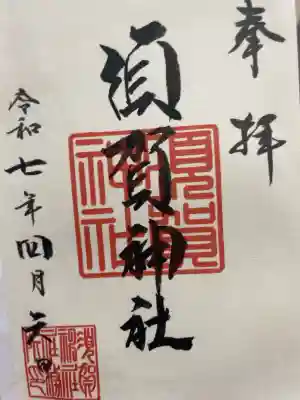 奉拝
須賀神社
須賀神社
令和七年四月六日